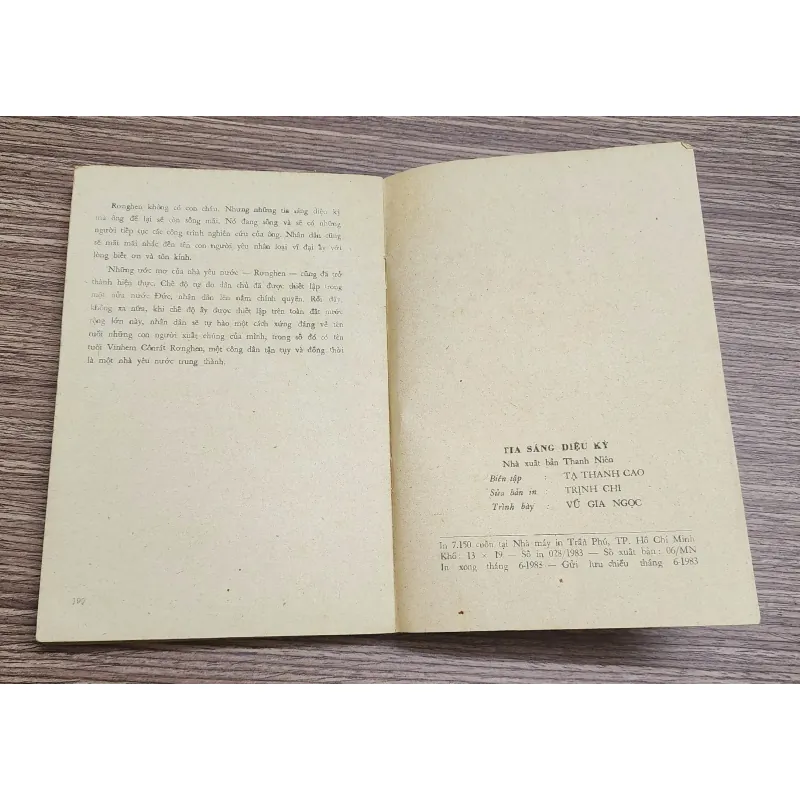 Rơnghen không có con cháu. Nhưng những tia sáng diệu kỳ
mà ông để lại sẽ còn sống mãi. Nó đang sống và sẽ có những
người tiếp tục các công trình nghiên cứu của ông. Nhân dân cũng
sẽ mãi mãi nhắc đến tên con người yêu nhân loại vĩ đại ấy với
lòng biết ơn và tôn kính.
Những ước mơ của nhà yêu nước — Rơnghen — cũng đã trở
thành hiện thực. Chế độ tự do dân chủ đã được thiết lập trong
một nửa nước Đức, nhân dân lên nắm chính quyền. Rồi đây
không xa nữa, khi chế độ ấy được thiết lập trên toàn đất nước
rộng lớn này, nhân dân sẽ tự hào một cách xứng đáng về tên
tuổi những con người xuất chúng của mình, trong số đó có tên
tuổi Vinhem Cônrát Rơnghen, một công dân tận tụy và đồng thời
là một nhà yêu nước trung thành.
TIA SÁNG DIỆU KỲ
Nhà xuất bản Thanh Niên
Biên tập : TẠ THANH CAO
Sửa bản in : TRỊNH CHI
Trình bày : VŨ GIA NGỌC
In 7.150 cuốn tại Nhà máy in Trần Phú, TP. Hồ Chí Minh
Khổ : 13 × 19 — Số in 028/1983 — Số xuất bản : 06/MN
In xong tháng 6-1983 — Gửi lưu chiểu tháng 6-1983